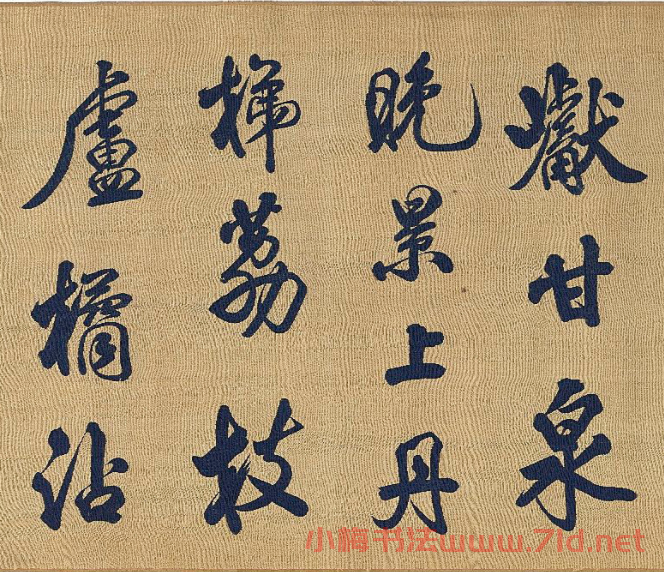 獻甘泉
晚景上丹
梯荔枝
盧橘沾
小梅书法www.7ld.net